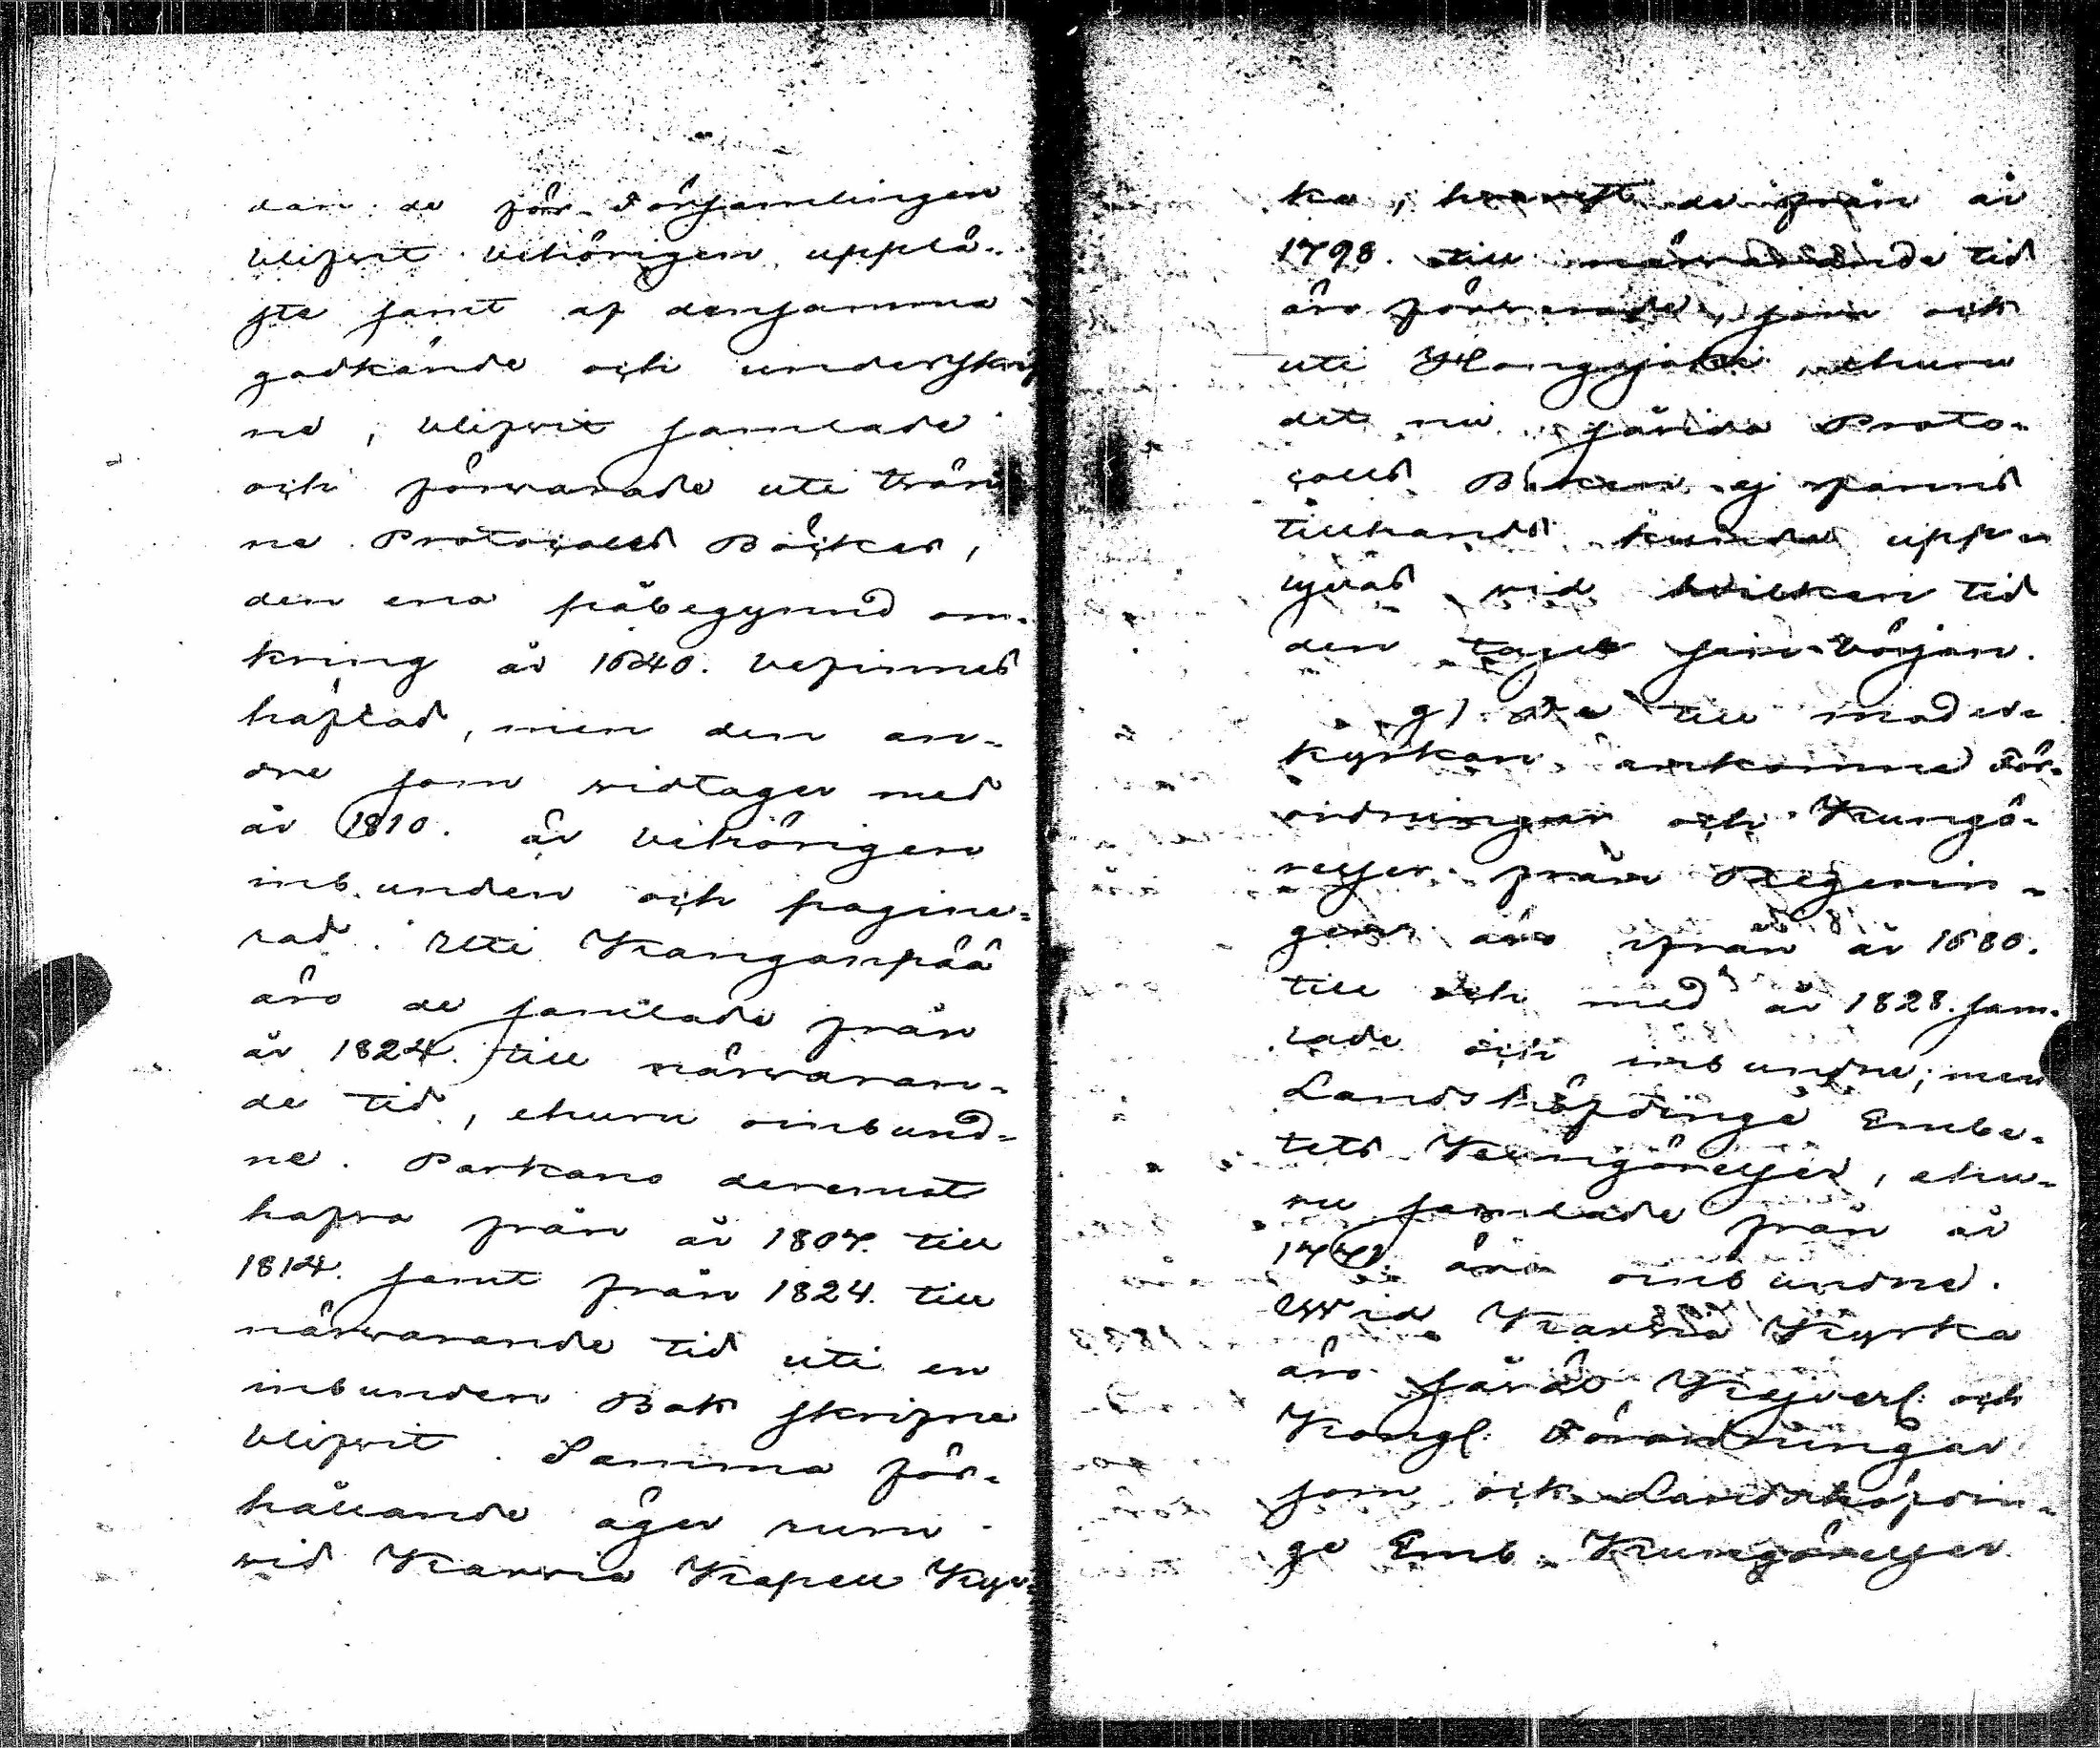 dan de för Församlingen
blifvit behörigen upplä-
ste samt af densamma
godkände och underskrif
ne, blifvit samlade
och förwarade uti twän
ne Protocolls Böcker,
den ena påbegynnd om-
kring år 1640. befinnes
häftad, men den an-
dre som widtager med
år 1810. är behörigen
inbunden och pagine-
rad. Uti Kanganpää
äro de samlade från
år 1824. till närwaran-
de tid, ehuru oinbund-
ne. Parkano deremot
hafva från år 1807. till
1814. samt från 1824. till
närwarande tid uti en
inbunden Bok skrifne
blifvit. Samma för-
hållande äger rum
wid Karvia Kapell Kyr-
ka, hwarest de ifrån år
1798. till närwarande tid
äro förwarade, som ock
uti Hongojoki, ehuru
det nu Proto-
colls Boken ej fanns
tillhands kunde upp-
gifvas wid hwilken tid
den tagit sin början.
g) De till moder
kyrkan ankomne För-
ordningar och Kungö-
relser från Regerin-
gen äro ifrån år 1680.
till och med år 1828. sam-
lade och inbundne; men
Landshöfdinge Embe-
tets Kungörelser, ehu-
ru samlade från år
1772. äro oinbundne.
Wid Karvia Kyrka
äro såväl Kejserl: och
Kongl: Förordningar
som ock Landshöfdin-
ge Emb. Kungörelser